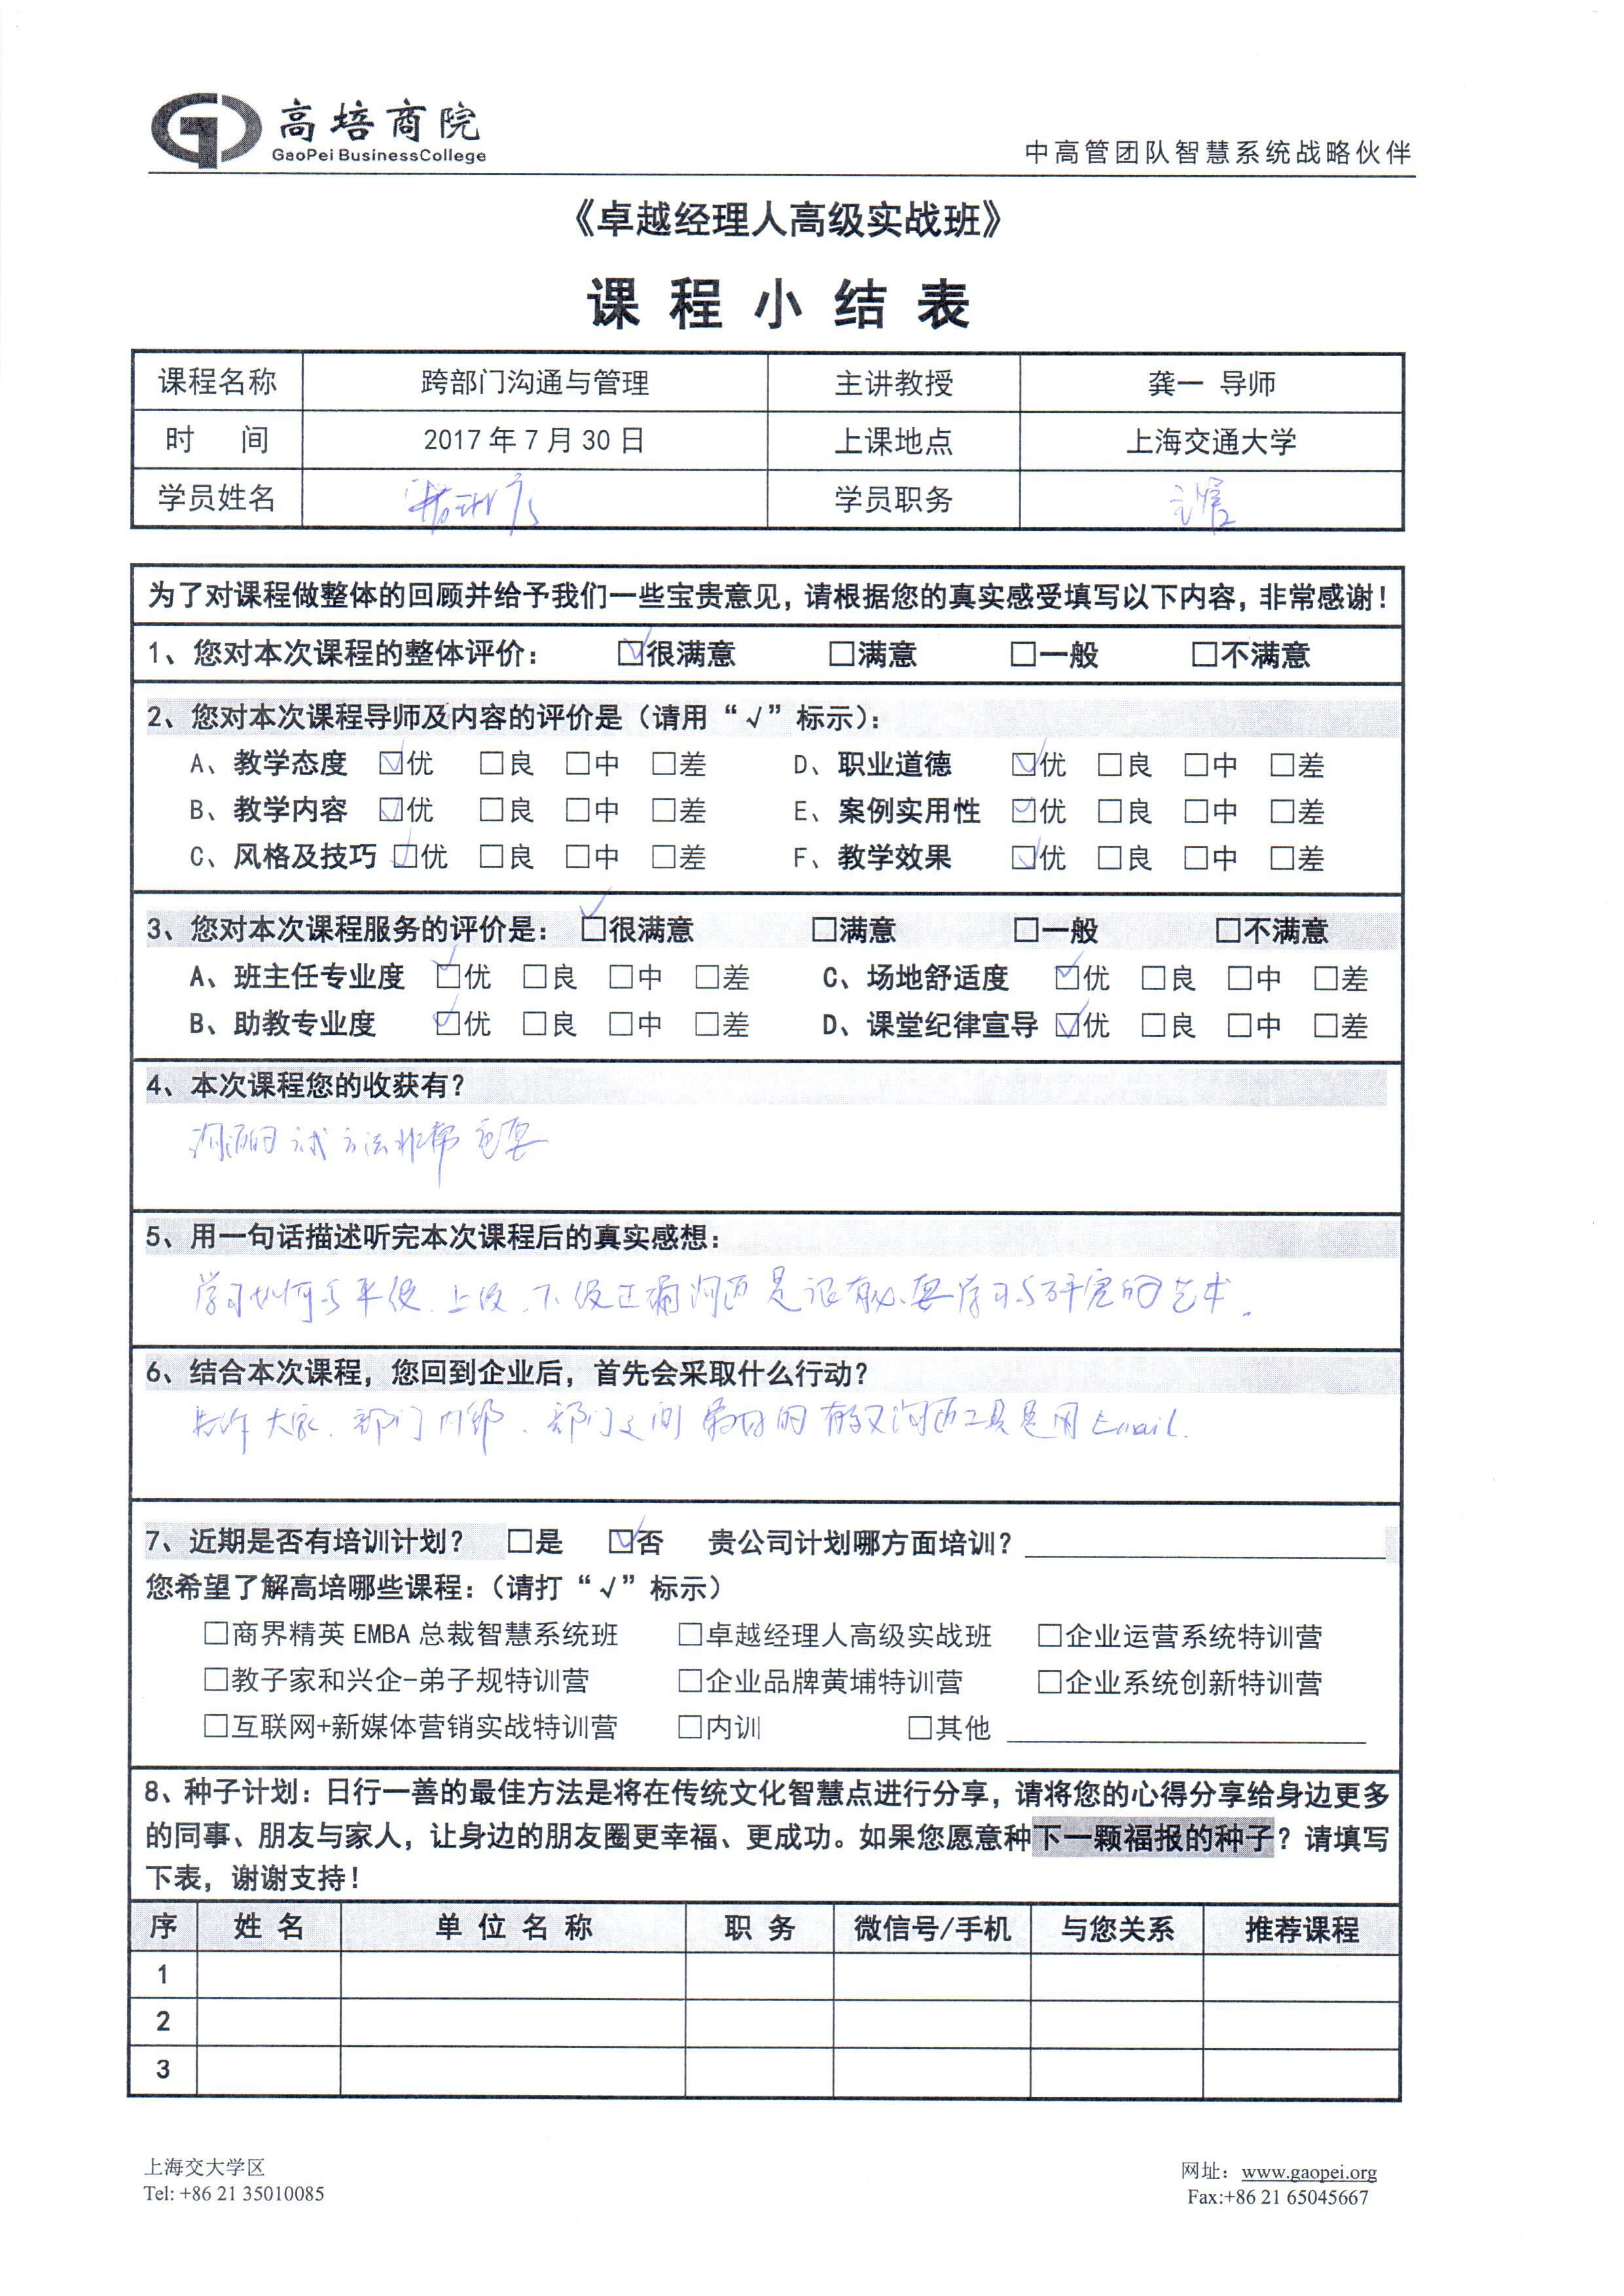 高培商院
GaoPei BusinessCollege
中高管团队智慧系统战略伙伴
《卓越经理人高级实战班》
课程小结表
课程名称 跨部门沟通与管理 主讲教授 龚一 导师
时 间 2017年7月30日 上课地点 上海交通大学
学员姓名 学员职务 主管
为了对课程做整体的回顾并给予我们一些宝贵意见，请根据您的真实感受填写以下内容，非常感谢！
1、您对本次课程的整体评价： ☑很满意 □满意 □一般 □不满意
2、您对本次课程导师及内容的评价是（请用“√”标示）：
A、教学态度 ☑优 □良 □中 □差 D、职业道德 ☑优 □良 □中 □差
B、教学内容 ☑优 □良 □中 □差 E、案例实用性 ☑优 □良 □中 □差
C、风格及技巧 ☑优 □良 □中 □差 F、教学效果 ☑优 □良 □中 □差
3、您对本次课程服务的评价是： ☑很满意 □满意 □一般 □不满意
A、班主任专业度 ☑优 □良 □中 □差 C、场地舒适度 ☑优 □良 □中 □差
B、助教专业度 ☑优 □良 □中 □差 D、课堂纪律宣导 ☑优 □良 □中 □差
4、本次课程您的收获有？
沟通的方法非常重要
5、用一句话描述听完本次课程后的真实感想：
学习如何与平级、上级、下级正确沟通是很有必要学习与的艺术。
6、结合本次课程，您回到企业后，首先会采取什么行动？
告诉大家、部门内部、部门之间最好的有效沟通工具是用Email.
7、近期是否有培训计划？ □是 ☑否 贵公司计划哪方面培训？
您希望了解高培哪些课程：（请打“√”标示）
□商界精英EMBA总裁智慧系统班 □卓越经理人高级实战班 □企业运营系统特训营
□教子家和兴企-弟子规特训营 □企业品牌黄埔特训营 □企业系统创新特训营
□互联网+新媒体营销实战特训营 □内训 □其他
8、种子计划：日行一善的最佳方法是将在传统文化智慧点进行分享，请将您的心得分享给身边更多
的同事、朋友与家人，让身边的朋友圈更幸福、更成功。如果您愿意种下一颗福报的种子？请填写
下表，谢谢支持！
序 姓名 单位名称 职务 微信号/手机 与您关系 推荐课程
1
2
3
上海交大学区 网址：www.gaopei.org
Tel: +86 21 35010085 Fax:+86 21 65045667